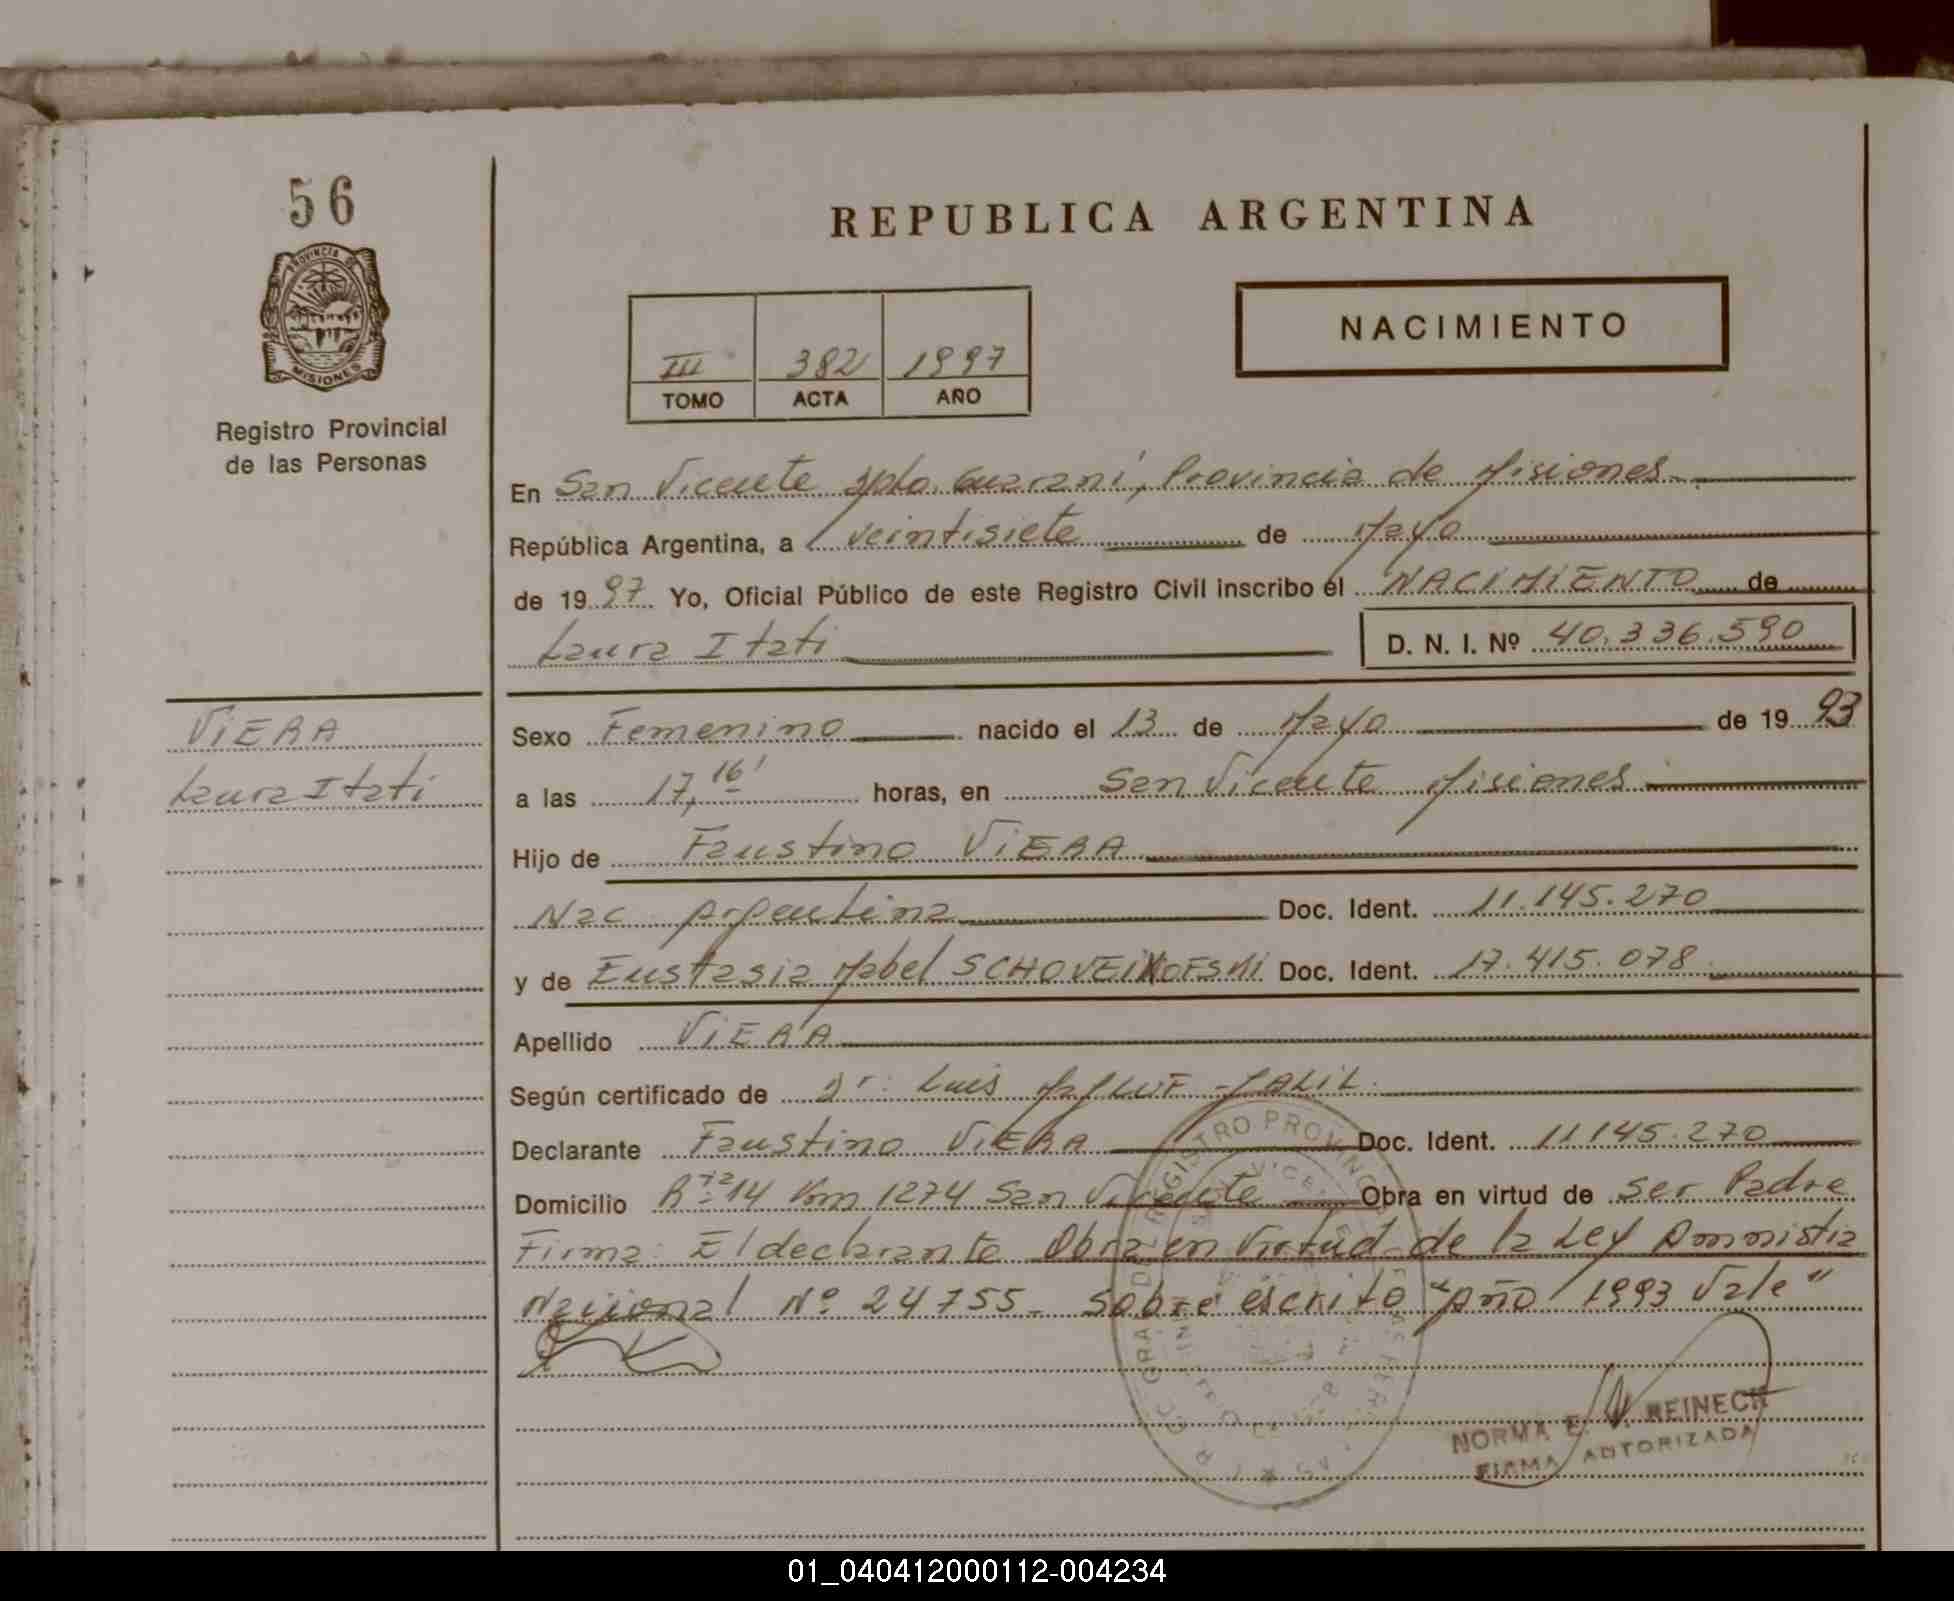 56
PROVINCIA DE
MISIONES
Registro Provincial
de las Personas
REPUBLICA ARGENTINA
III 382 1997
TOMO ACTA AÑO
NACIMIENTO
En San Vicente Dpto. Guaraní, Provincia de Misiones
República Argentina, a veintisiete de Mayo
de 1997 Yo, Oficial Público de este Registro Civil inscribo el NACIMIENTO de
Laura Itati D. N. I. Nº 40.336.590
VIERA
Laura Itati
Sexo Femenino nacido el 13 de Mayo de 1993
a las 17,16' horas, en San Vicente Misiones
Hijo de Faustino VIERA
Nac. Argentina Doc. Ident. 11.145.270
y de Eustasia Mabel Doc. Ident. 17.415.078
Apellido VIERA
Según certificado de Dr. Luis JALIL.
Declarante Faustino VIERA Doc. Ident. 11145.270
Domicilio Rta 14 Km 1274 San Vicente Obra en virtud de ser Padre
Firma: El declarante Obra en Virtud de la Ley Amnistia
Nacional Nº 24755- Sobre escrito "Año 1993 Vale"
REGISTRO PROVINC
NORMA E. REINECK
FIRMA AUTORIZADA
01_040412000112-004234